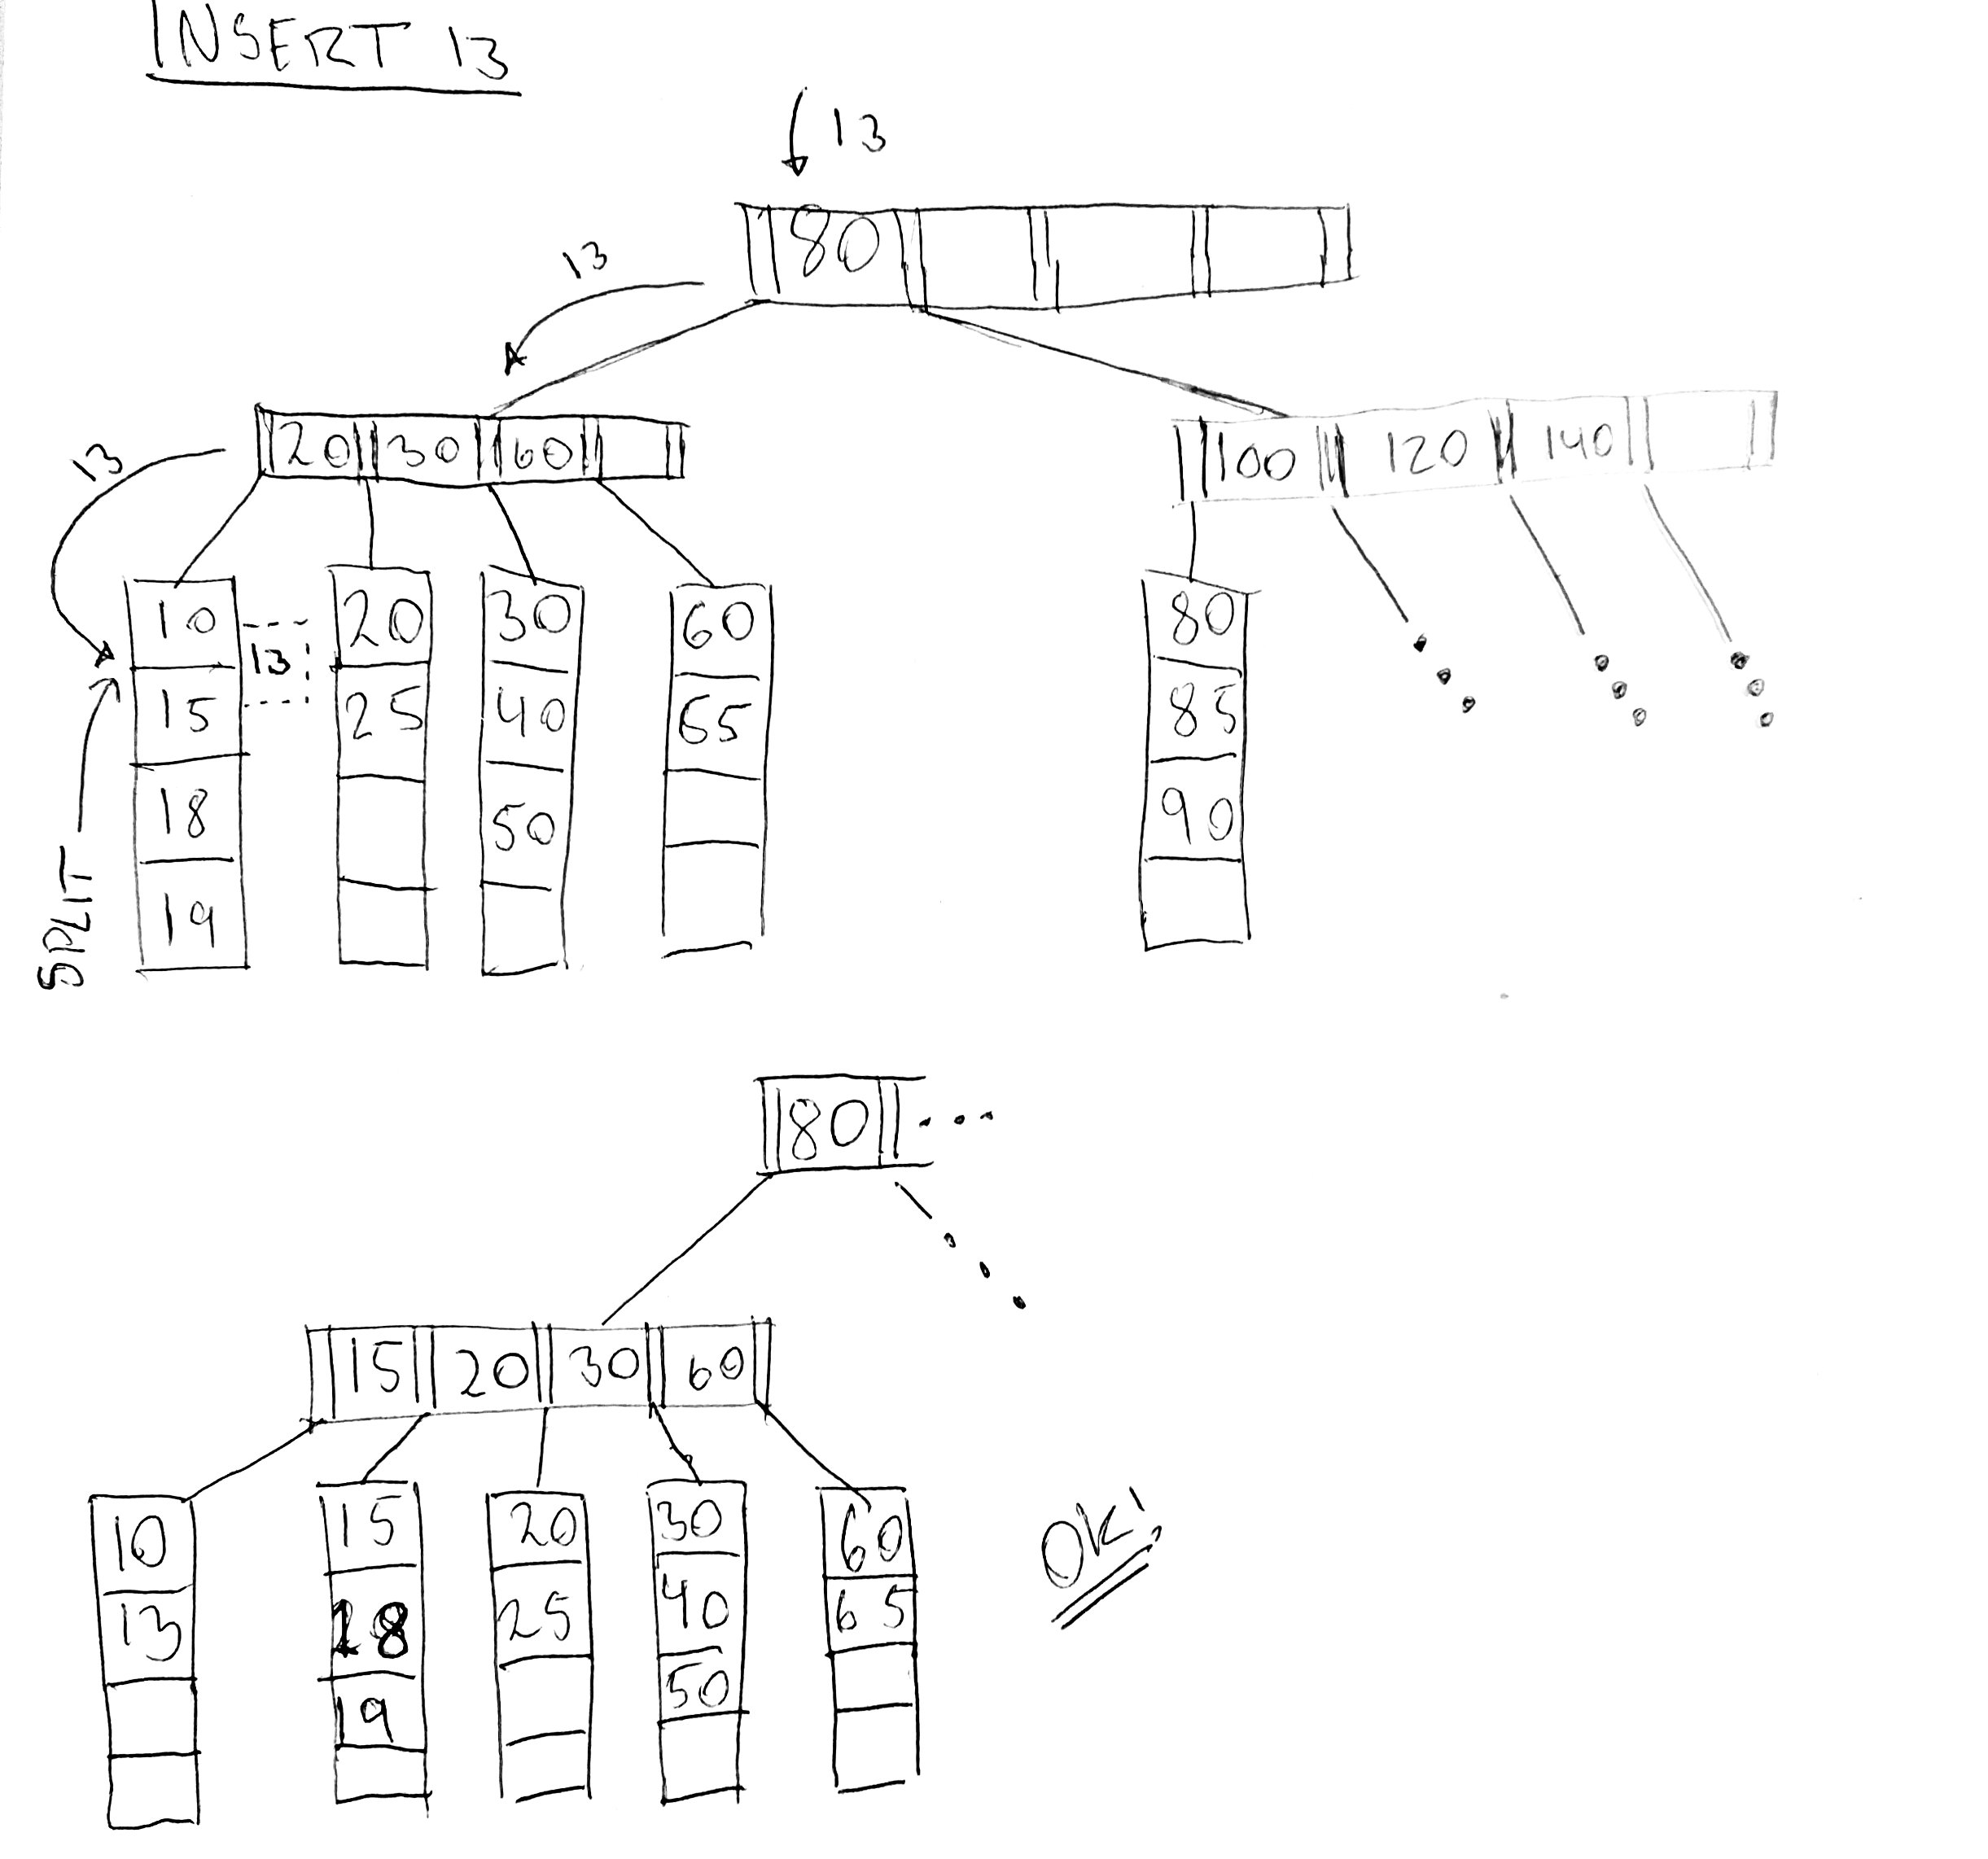 INSERT 13
13
80
13
20 30 60
100 120 140
13
10 15 18 19
13
20 25
30 40 50
60 65
80 85 90
SPLIT
80
15 20 30 60
10 13
15 18 19
20 25
30 40 50
60 65
OK!